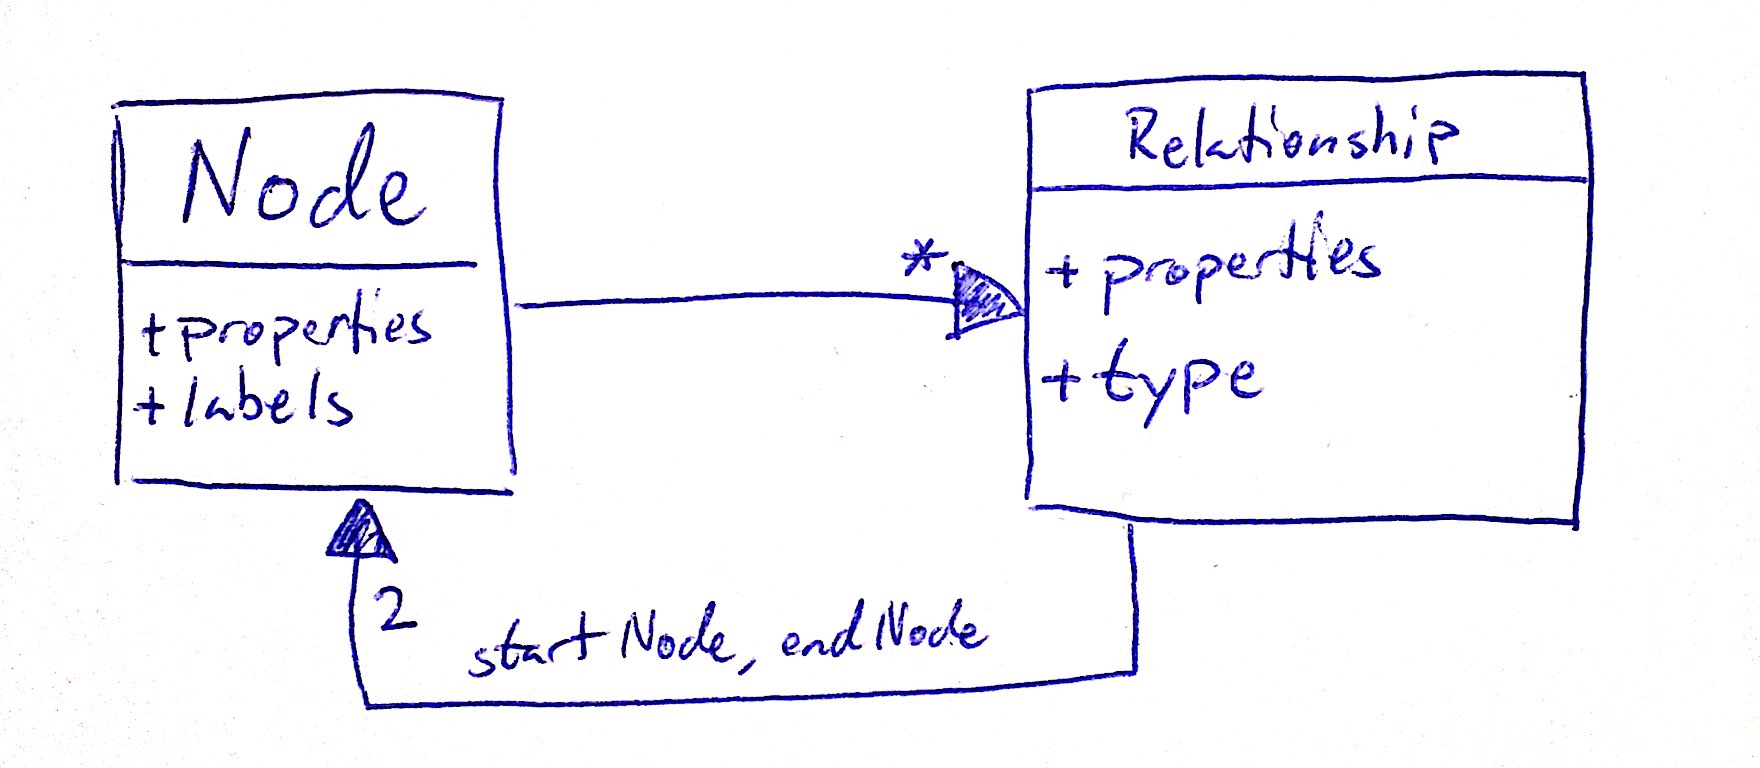 Node
+ properties
+ labels
*
Relationship
+ properties
+ type
2
startNode, endNode